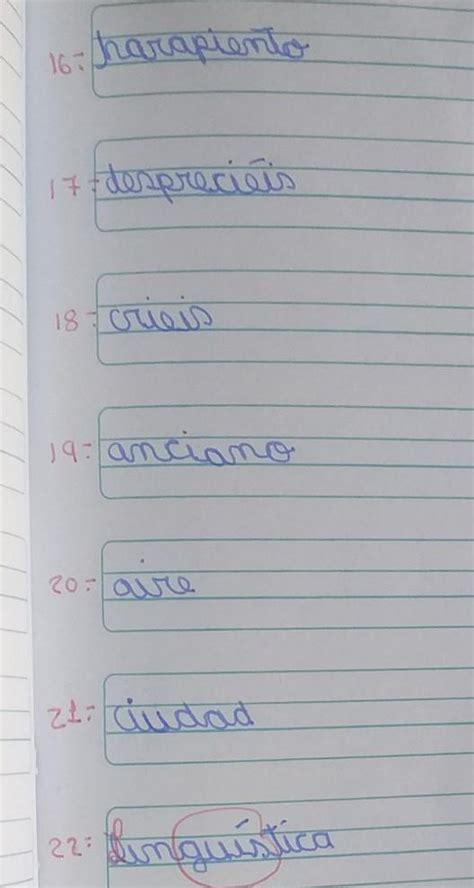 16: harapiento
17: despreciéis
18: crieis
19: anciano
20: aire
21: ciudad
22: Lingüística